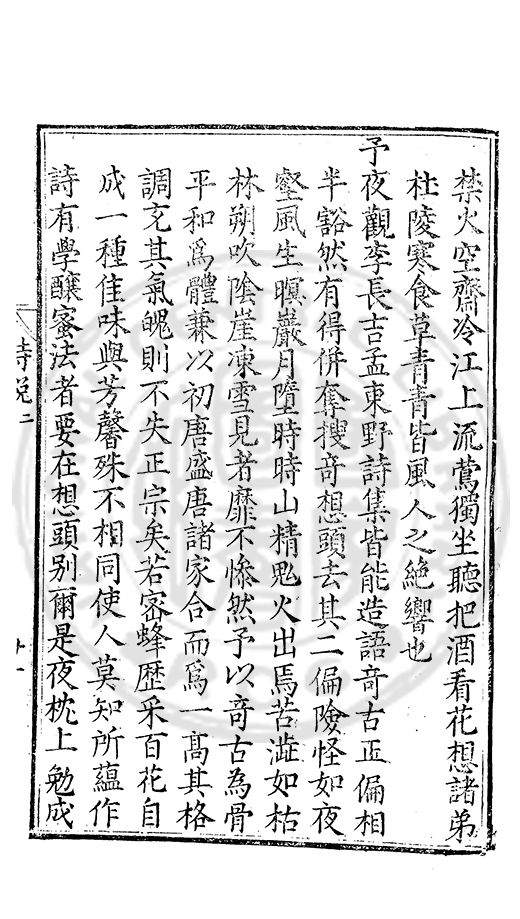 禁火空齋冷江上流鶯獨坐聽把酒看花想諸弟
杜陵寒食草青青皆風人之絶響也
予夜觀李長吉孟東野詩集皆能造語竒古正偏相
半豁然有得併奪搜竒想頭去其二偏險怪如夜
壑風生暝巖月墮時時山精鬼火出焉苦澁如枯
林朔吹陰崖凍雪見者靡不慘然予以竒古為骨
平和爲體兼以初唐盛唐諸家合而爲一高其格
調充其氣魄則不失正宗矣若密蜂歴采百花自
成一種佳味與芳馨殊不相同使人莫知所蘊作
詩有學釀蜜法者要在想頭别爾是夜枕上勉成
詩説二
十一